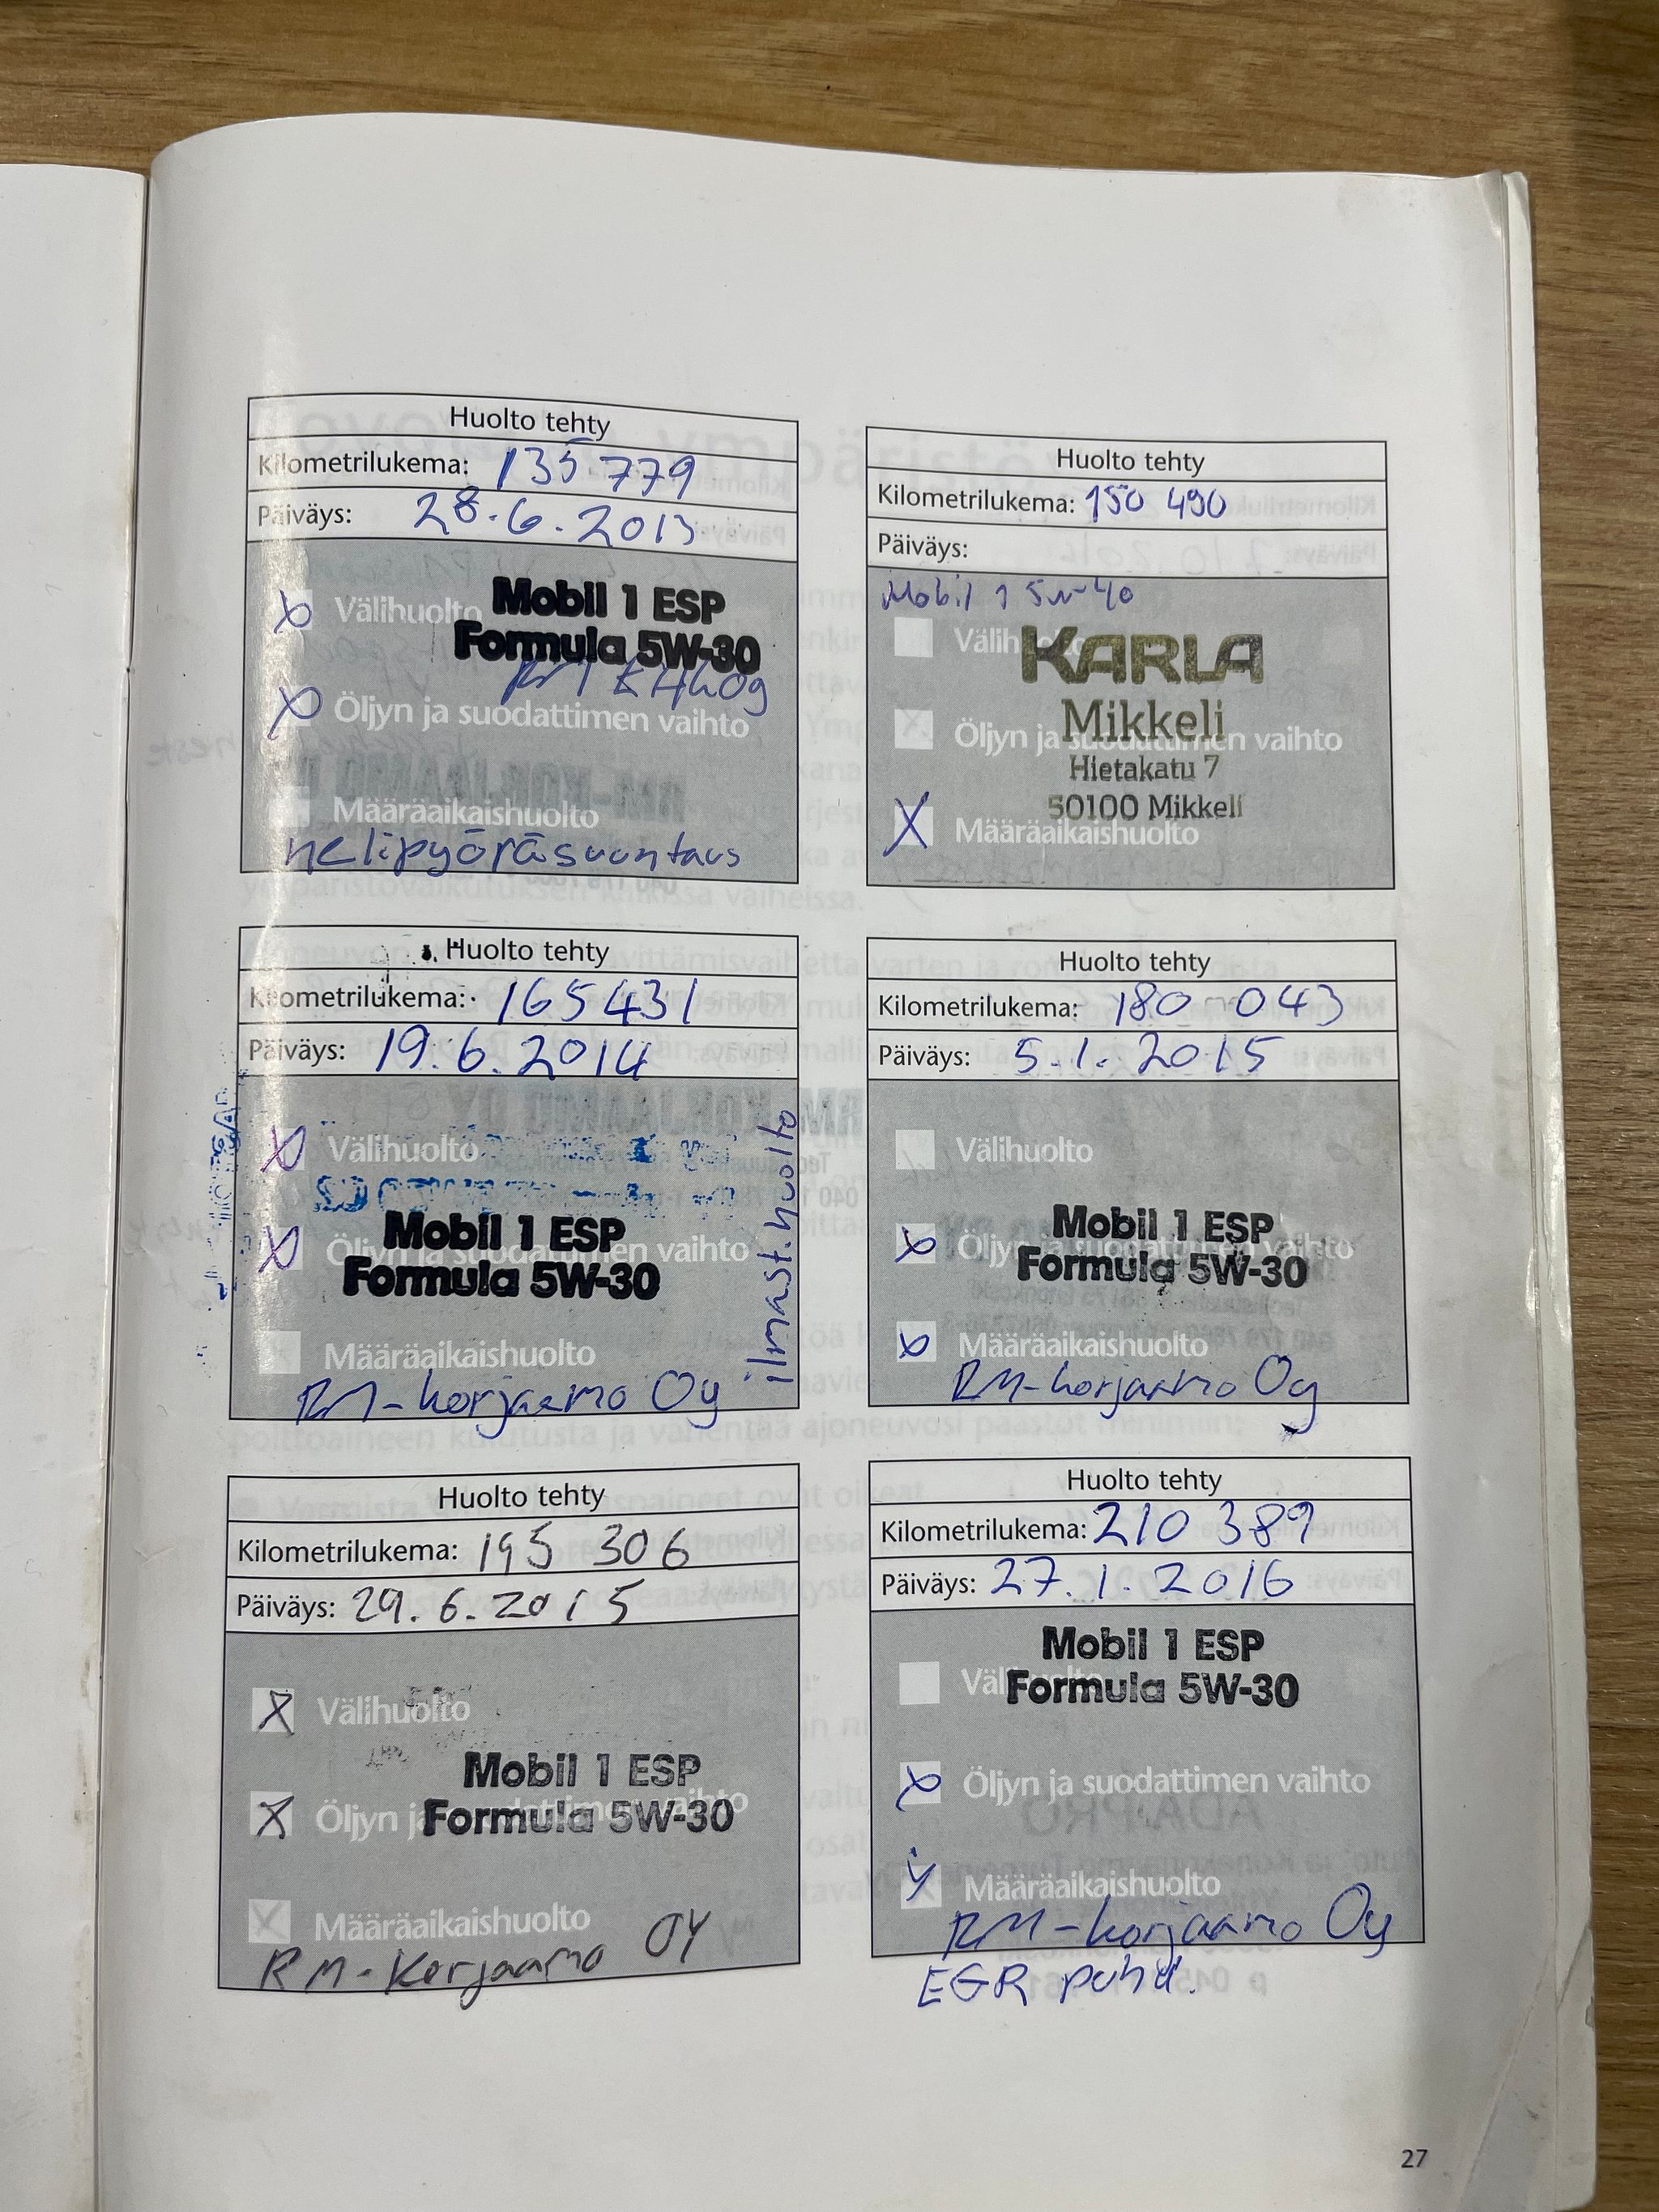 Huolto tehty
Kilometrilukema: 135 779
Päiväys: 28.6.2013
Mobil 1 ESP
Formula 5W-30
Välihuolto
Öljyn ja suodattimen vaihto
Määräaikaishuolto
nelipyöräsuuntaus
Huolto tehty
Kilometrilukema: 150 490
Päiväys:
Mobil 1 5w-40
Välihuolto
KARLA
Mikkeli
Öljyn ja suodattimen vaihto
Hietakatu 7
50100 Mikkeli
Määräaikaishuolto
Huolto tehty
Kilometrilukema: 165431
Päiväys: 19.6.2014
Välihuolto
Mobil 1 ESP
Öljyn ja suodattimen vaihto
Formula 5W-30
Määräaikaishuolto
RM-korjaamo Oy
ilmast.huolto
Huolto tehty
Kilometrilukema: 180 043
Päiväys: 5.1.2015
Välihuolto
Mobil 1 ESP
Öljyn ja suodattimen vaihto
Formula 5W-30
Määräaikaishuolto
RM-korjaamo Oy
Huolto tehty
Kilometrilukema: 195 306
Päiväys: 29.6.2015
Välihuolto
Mobil 1 ESP
Öljyn ja suodattimen vaihto
Formula 5W-30
Määräaikaishuolto
RM-Korjaamo OY
Huolto tehty
Kilometrilukema: 210 389
Päiväys: 27.1.2016
Mobil 1 ESP
Välihuolto
Formula 5W-30
Öljyn ja suodattimen vaihto
Määräaikaishuolto
RM-korjaamo Oy
EGR puhd.
27